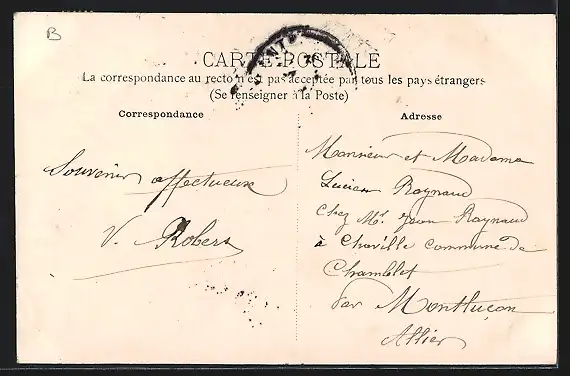 B
CARTE POSTALE
La correspondance au recto n'est pas acceptée par tous les pays étrangers
(Se renseigner à la Poste)
Correspondance
Souvenir affectueux
V. Robert
Adresse
Monsieur et Madame
Lucien Raynaud
Chez Mr Jean Raynaud
à Chaville commune de
Chamblet
par Montluçon
Allier